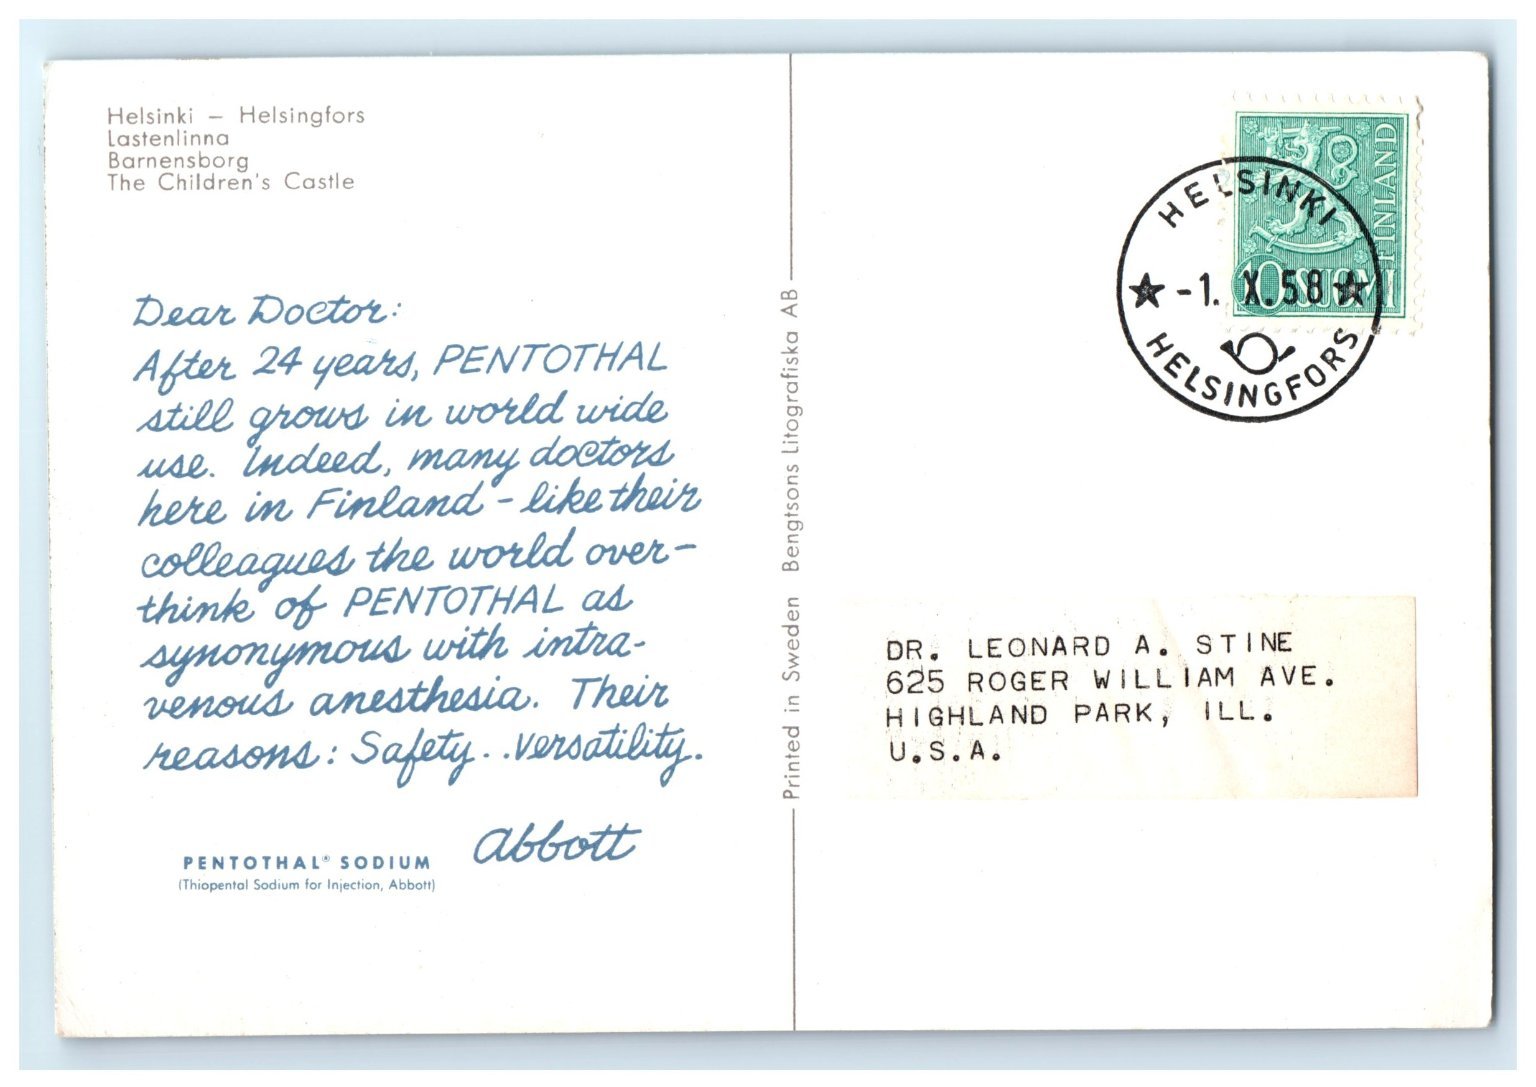 Helsinki – Helsingfors
Lastenlinna
Barnensborg
The Children's Castle
Dear Doctor:
After 24 years, PENTOTHAL
still grows in world wide
use. Indeed, many doctors
here in Finland – like their
colleagues the world over –
think of PENTOTHAL as
synonymous with intra-
venous anesthesia. Their
reasons: Safety. . Versatility.
Abbott
PENTOTHAL® SODIUM
(Thiopental Sodium for Injection, Abbott)
Printed in Sweden Bengtsons Litografiska AB
FINLAND
10 SUOMI
HELSINKI
-1. X.58
HELSINGFORS
DR. LEONARD A. STINE
625 ROGER WILLIAM AVE.
HIGHLAND PARK, ILL.
U.S.A.